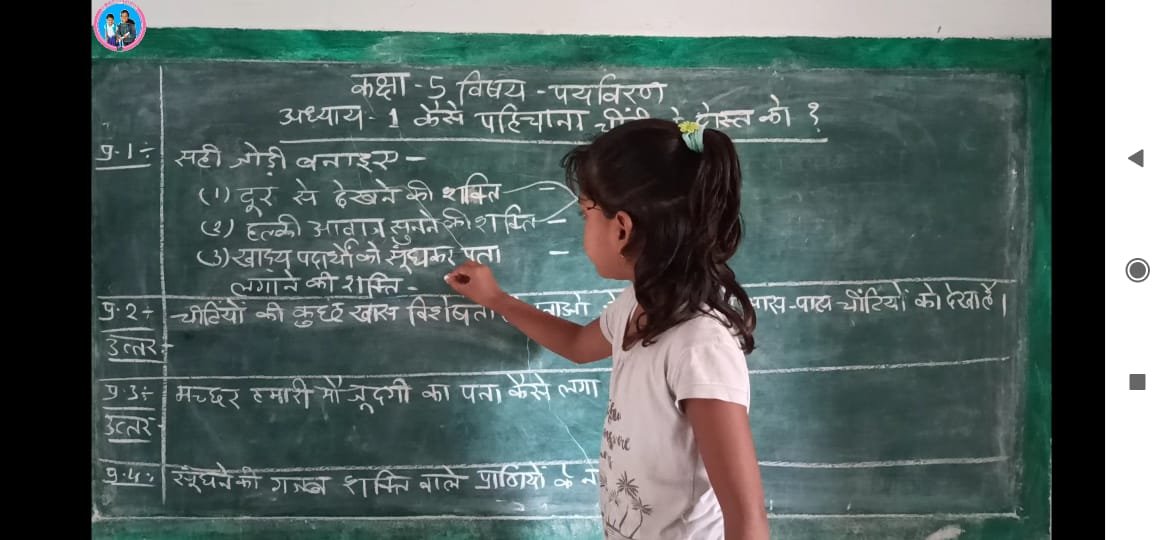 कक्षा - 5 विषय - पर्यावरण
अध्याय - 1 कैसे पहिचाना चींटी ने दोस्त को ?
प्र.1÷ सही जोड़ी बनाइए -
(1) दूर से देखने की शक्ति -
(2) हल्की आवाज सुनने की शक्ति -
(3) खाद्य पदार्थों को सूंघकर पता -
लगाने की शक्ति -
प्र.2÷ चीटियों की कुछ खास पास-पास चींटियों को देखा है।
उत्तर-
प्र.3÷ मच्छर हमारी मौजूदगी का पता कैसे लगा
उत्तर-
प्र.4÷ सूंघने की गजब शक्ति वाले प्राणियों के